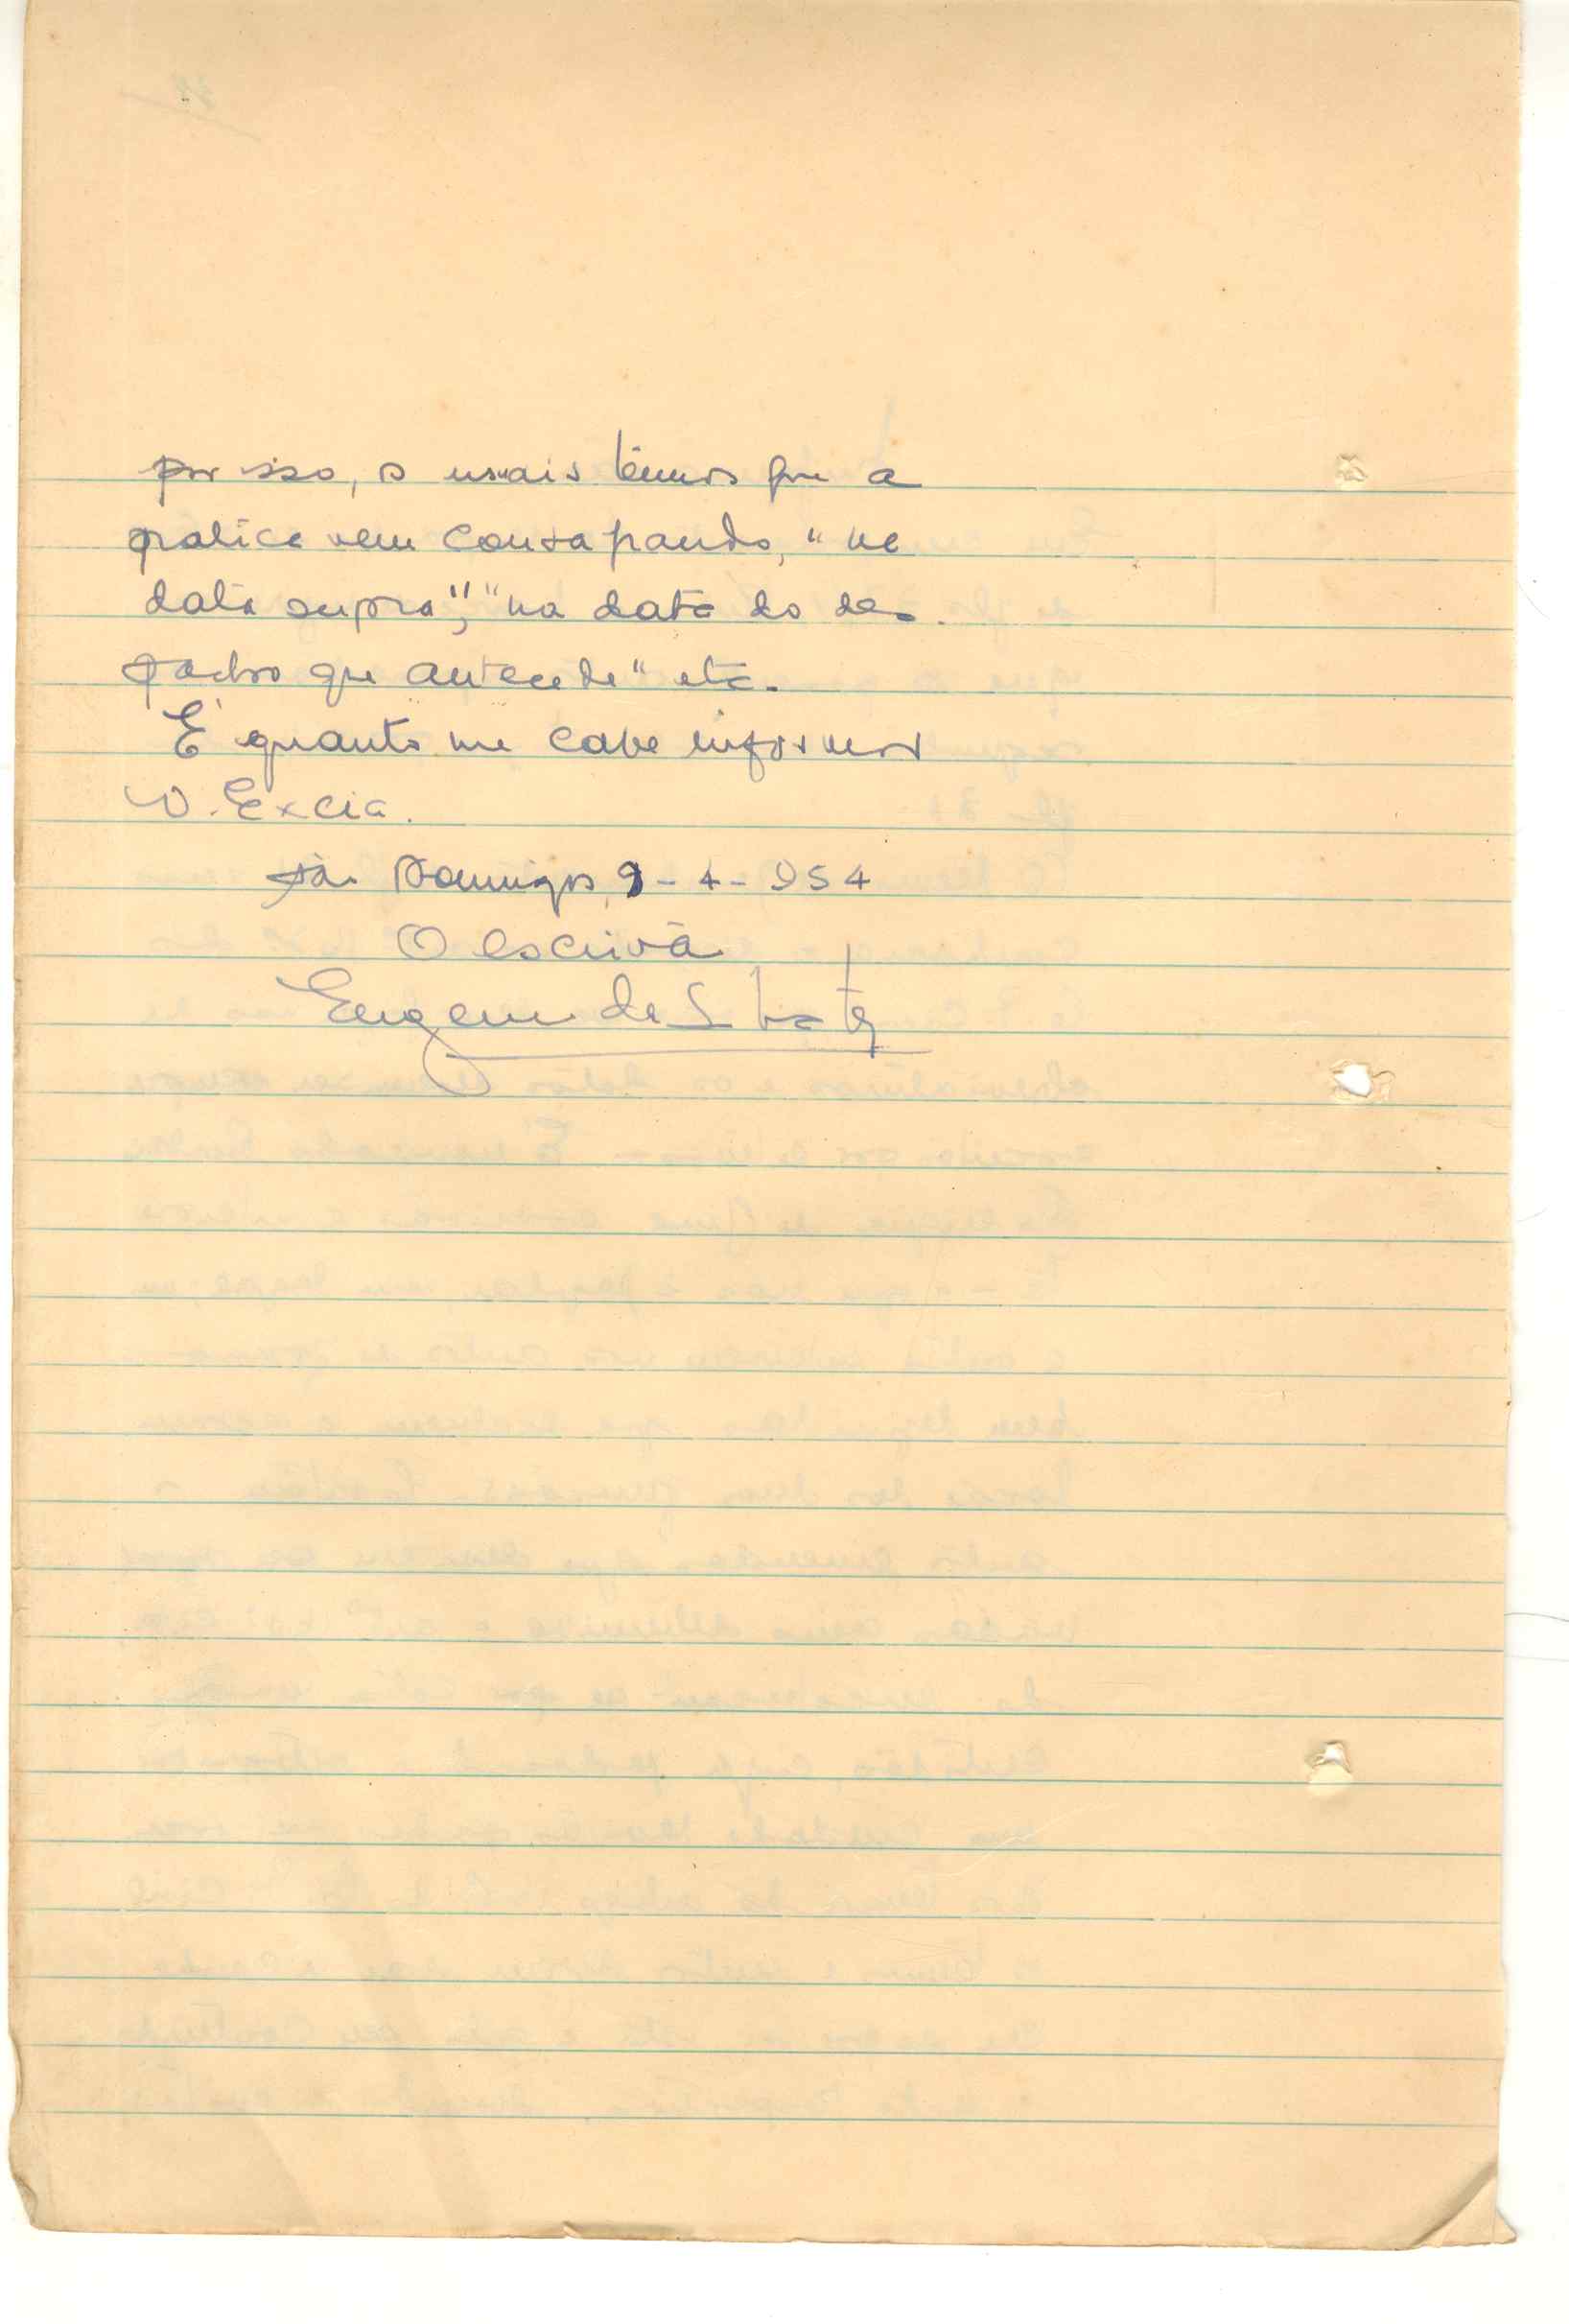 por isso, os usuais têrmos que a
pratica vem consagrando, "na
data supra", "na data do des-
pacho que antecede" etc.
É quanto me cabe informar
V. Excia.
São Domingos, 9-4-954
O escrivão
Eugenio de S